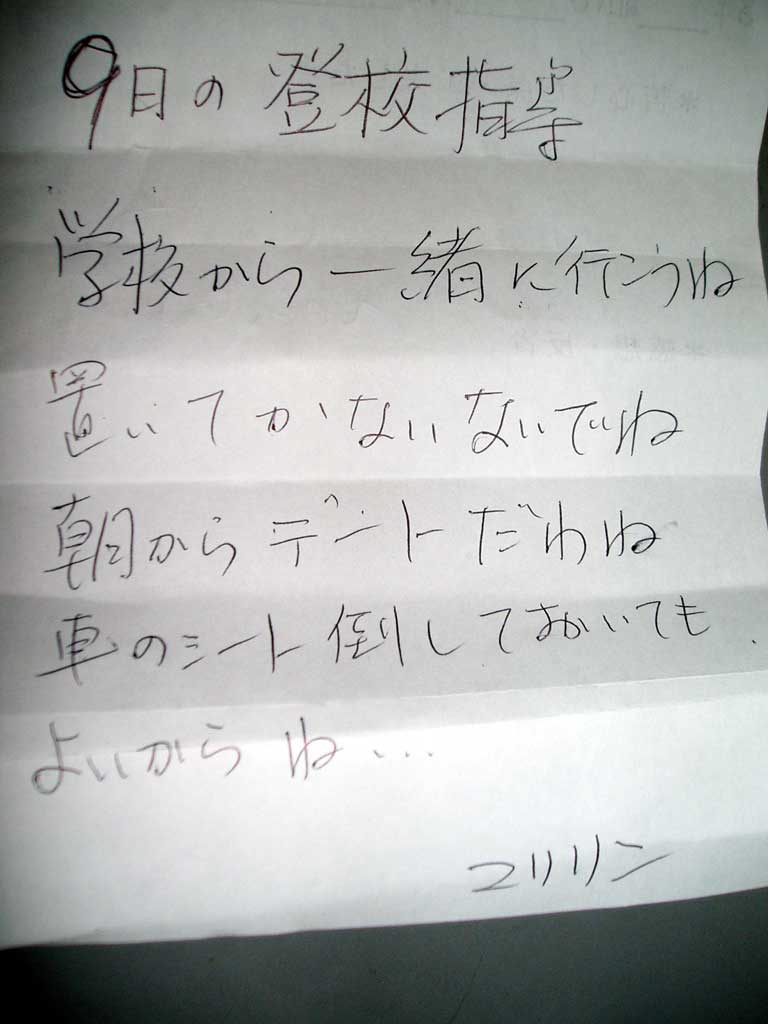 9日の登校指導
学校から一緒に行こうね
置いてかないないでね
朝からデートだわね
車のシート倒しておいても
よいからね...
マリリン